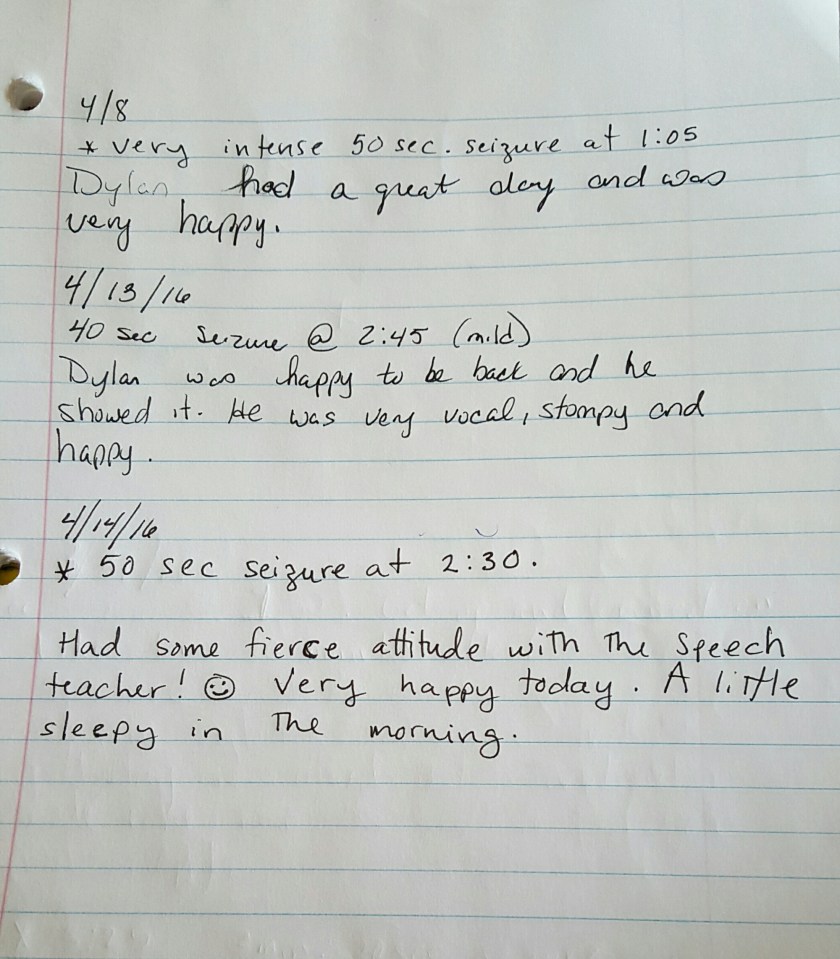 4/8
* very intense 50 sec. seizure at 1:05
Dylan had a great day and was
very happy.
4/13/16
40 sec seizure @ 2:45 (mild)
Dylan was happy to be back and he
showed it. He was very vocal, stompy and
happy.
4/14/16
* 50 sec seizure at 2:30.
Had some fierce attitude with The Speech
teacher! ☺ Very happy today. A little
sleepy in The morning.